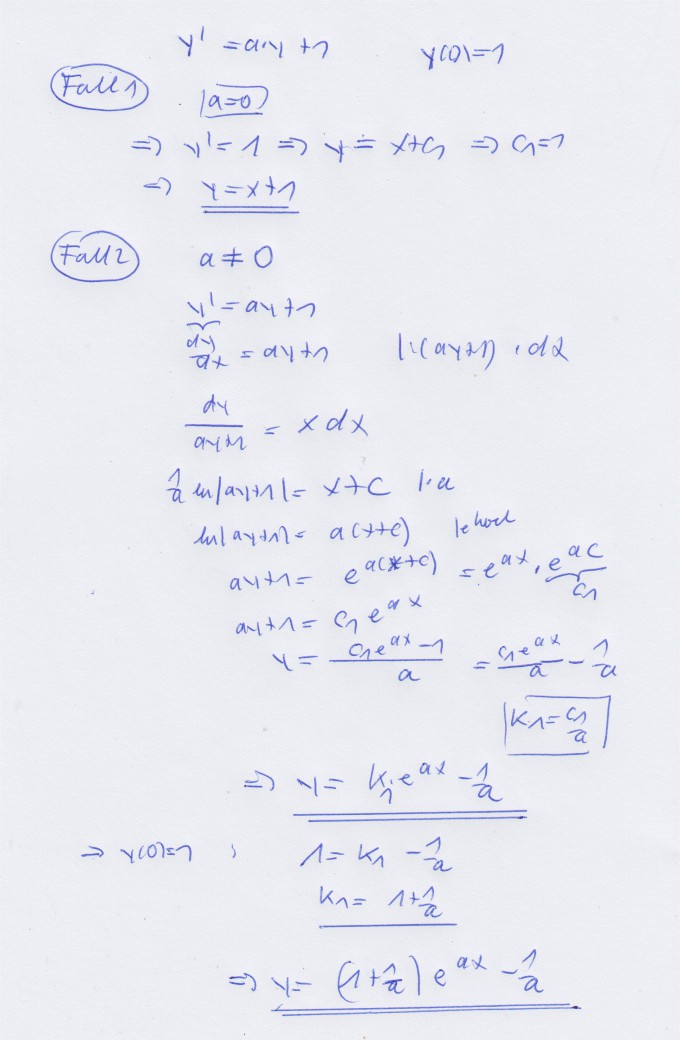 y' = a·y + 1 y(0)=1
Fall 1 |a=0|
⇒ y' = 1 ⇒ y = x+C₁ ⇒ C₁=1
⇒ y = x+1
Fall 2 a ≠ 0
y' = ay+1
dy/dx = ay+1 |:(ay+1) · dx
dy/(ay+1) = x dx
1/a ln|ay+1| = x+C |·a
ln|ay+1| = a(x+C) |e hoch
ay+1 = e^(a(x+C)) = e^(ax) · e^(aC) C₁
ay+1 = C₁ e^(ax)
y = (C₁e^(ax) -1)/a = C₁e^(ax)/a - 1/a
|K₁ = C₁/a|
⇒ y = K₁·e^(ax) - 1/a
⇒ y(0)=1 ; 1 = K₁ - 1/a
K₁ = 1+1/a
⇒ y = (1+1/a) e^(ax) - 1/a